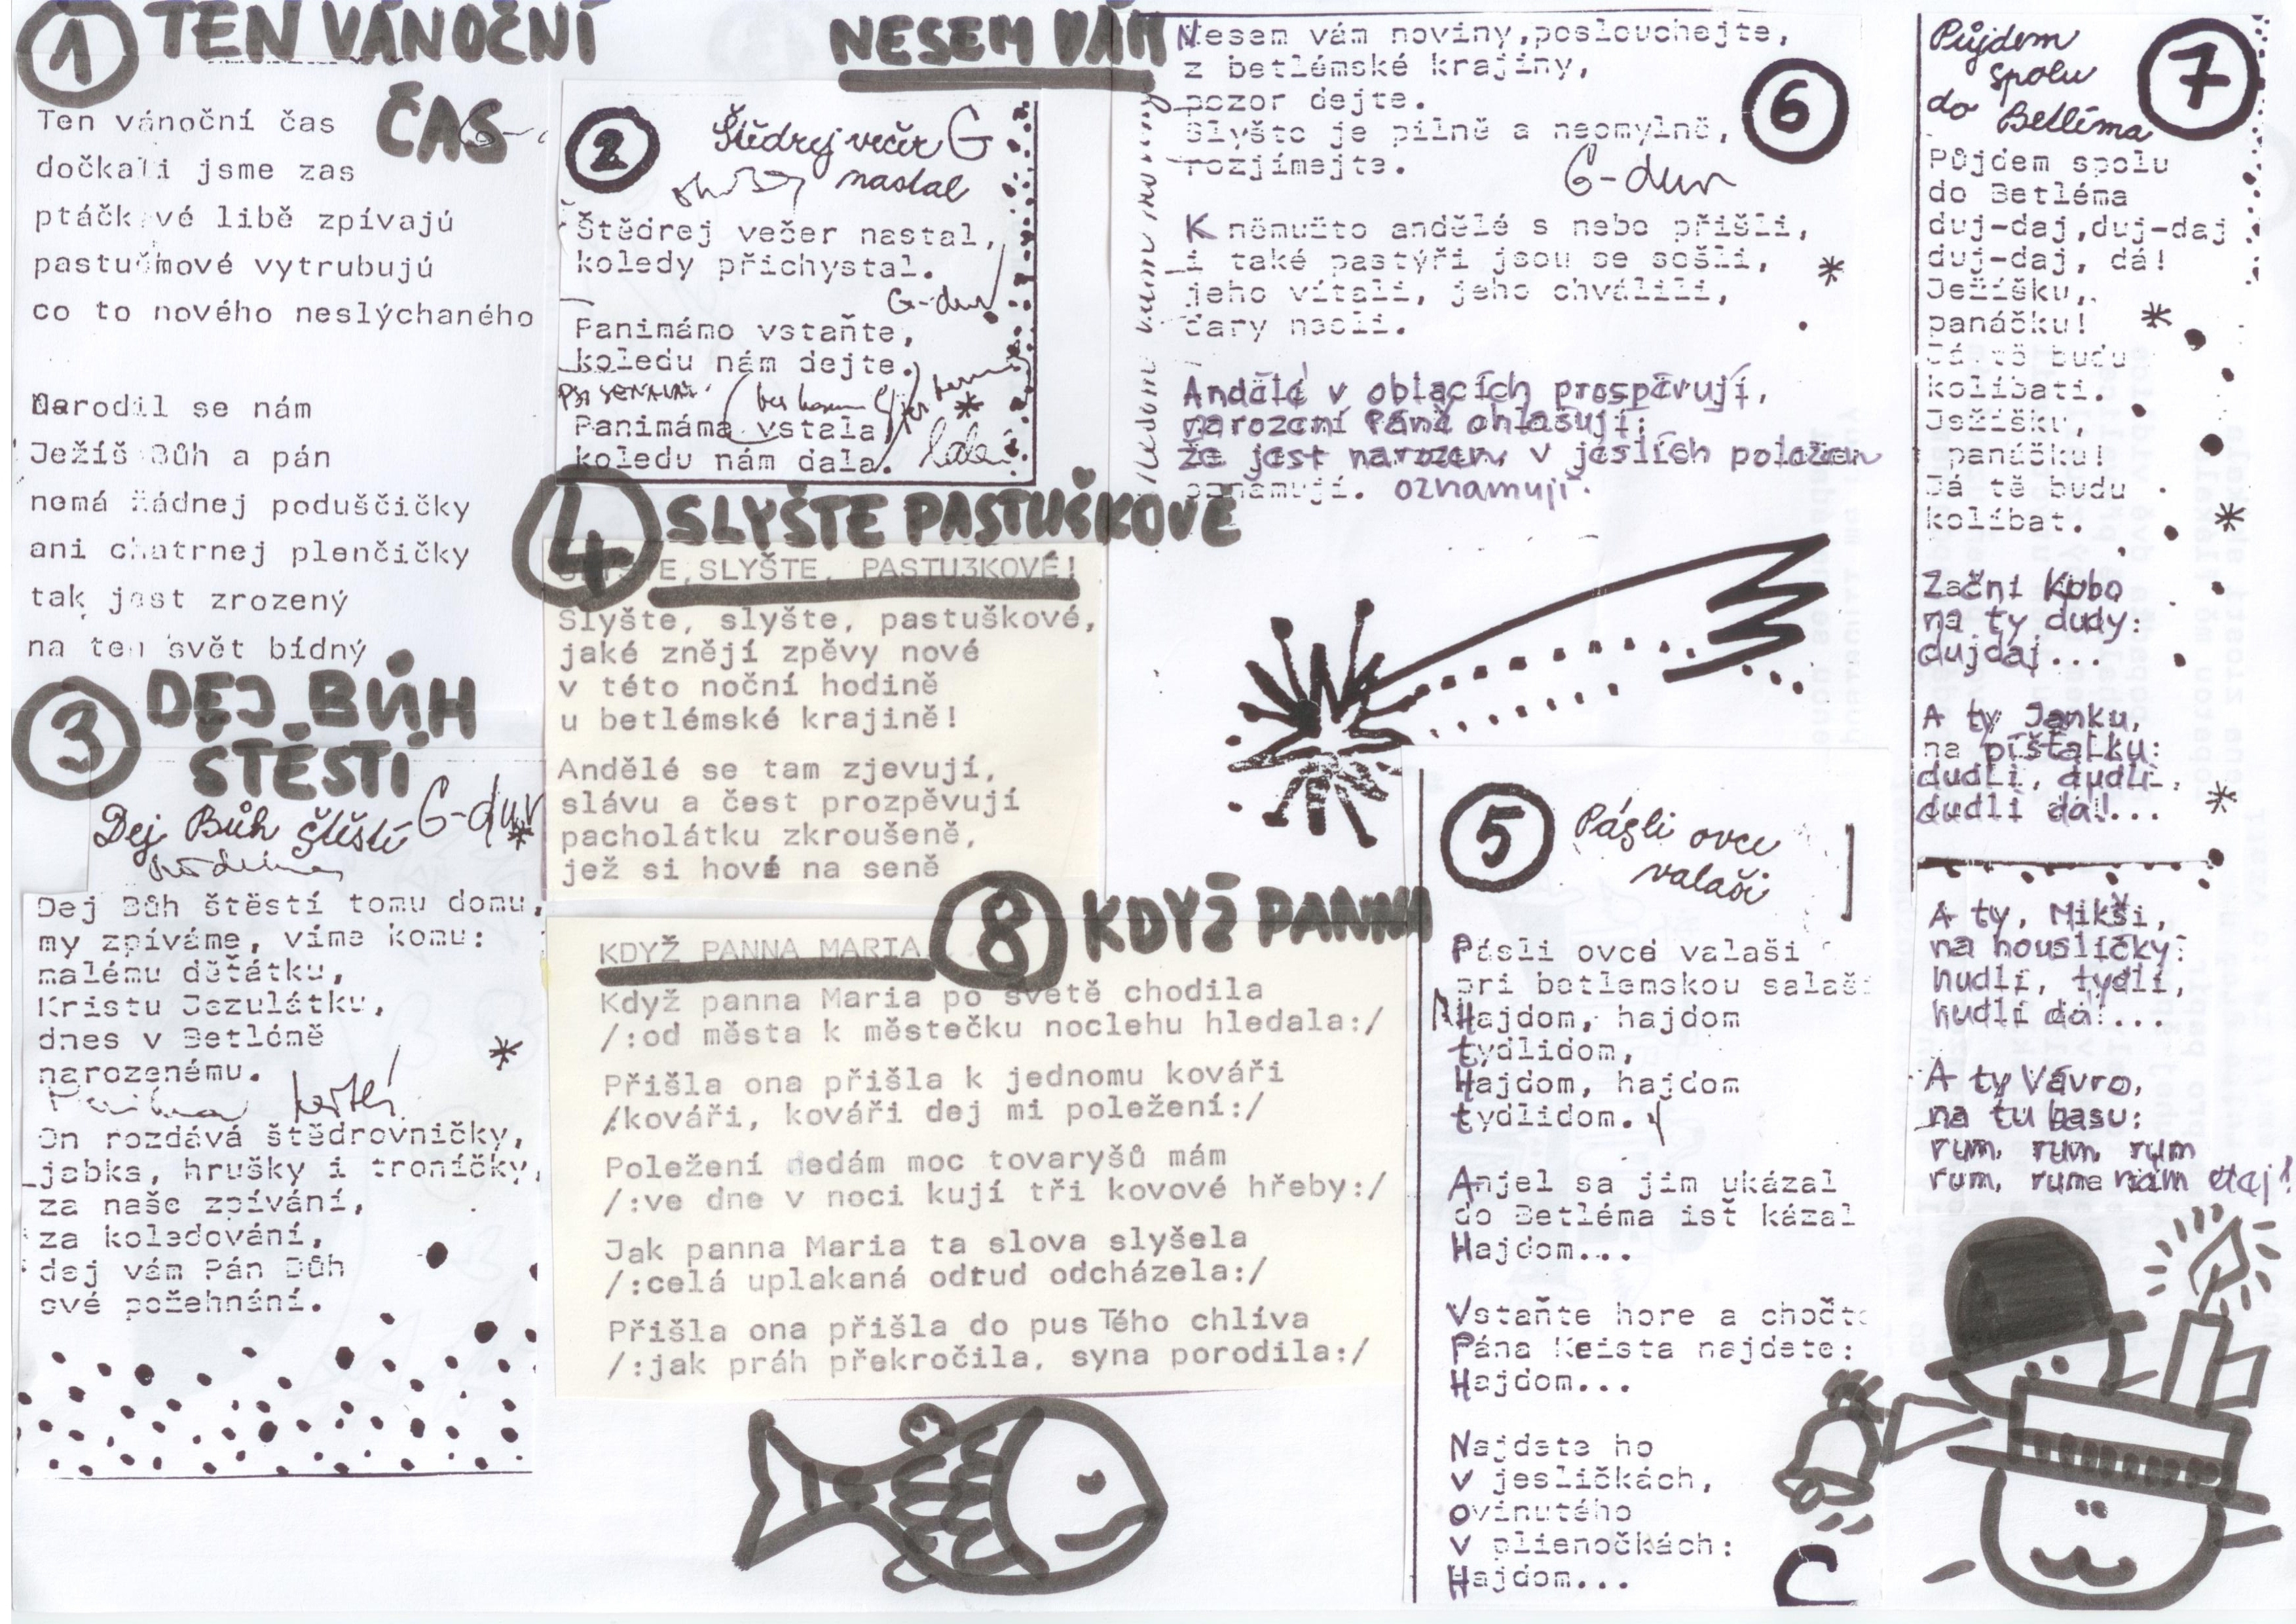 1 TEN VÁNOČNÍ
ČAS
Ten vánoční čas
dočkali jsme zas
ptáčkové libě zpívajú
pastuškové vytrubujú
co to nového neslýchaného
Narodil se nám
Ježíš Bůh a pán
nemá žádnej poduščičky
ani chatrnej plenčičky
tak jest zrozený
na ten svět bídný
2
Štědrej večer G
nastal
Štědrej večer nastal,
koledy přichystal.
G-dur
Panimámo vstaňte,
koledu nám dejte.
Panimáma vstala,
koledu nám dala.
3 DEJ BŮH
ŠTĚSTÍ
Dej Bůh štěstí G-dur
Dej Bůh štěstí tomu domu,
my zpíváme, víme komu:
malému děťátku,
Kristu Jezulátku,
dnes v Betlémě
narozenému.
On rozdává štědrovničky,
jabka, hrušky i troníčky,
za naše zpívání,
za koledování,
dej vám Pán Bůh
své požehnání.
4 SLYŠTE PASTUŠKOVÉ
SLYŠTE,SLYŠTE, PASTU3KOVÉ!
Slyšte, slyšte, pastuškové,
jaké znějí zpěvy nové
v této noční hodině
u betlémské krajině!
Andělé se tam zjevují,
slávu a čest prozpěvují
pacholátku zkroušeně,
jež si hové na seně
5
Pásli ovce
valaši
Pásli ovce valaši
pri betlemskou salaši
Hajdom, hajdom
tydlidom,
Hajdom, hajdom
tydlidom.
Anjel sa jim ukázal
do Betléma isť kázal
Hajdom...
Vstaňte hore a choďte
Pána Krista najdete:
Hajdom...
Najdete ho
v jesličkách,
ovinutého
v plienočkách:
Hajdom...
C
NESEM VÁM
Nesem vám noviny
6
Nesem vám noviny,poslouchejte,
z betlémské krajiny,
pozor dejte.
Slyšte je pilně a neomylně,
rozjímejte.
G-dur
K němužto andělé s nebe přišli,
i také pastýři jsou se sešli,
jeho vítali, jeho chválili,
dary nesli.
Andělé v oblacích prospěvují,
narození Páně ohlašují:
že jest narozen, v jeslích položen
oznamují. oznamují.
7
Půjdem
spolu
do Betléma
Půjdem spolu
do Betléma
duj-daj,duj-daj
duj-daj, dá!
Ježíšku,
panáčku!
Já tě budu
kolíbati.
Ježíšku,
panáčku!
Já tě budu
kolíbat.
Začni Kubo
na ty dudy:
dujdaj...
A ty Janku,
na píšťalku:
dudli, dudli,
dudli dá!...
A ty, Mikši,
na housličky:
hudli, tydli,
hudli dá!...
A ty Vávro,
na tu basu:
rum, rum, rum
rum, ruma nám daj!
8 KDYŽ PANNA
KDYŽ PANNA MARIA
Když panna Maria po světě chodila
/:od města k městečku noclehu hledala:/
Přišla ona přišla k jednomu kováři
/kováři, kováři dej mi poležení:/
Poležení nedám moc tovaryšů mám
/:ve dne v noci kují tři kovové hřeby:/
Jak panna Maria ta slova slyšela
/:celá uplakaná odtud odcházela:/
Přišla ona přišla do pusTého chlíva
/:jak práh překročila, syna porodila:/